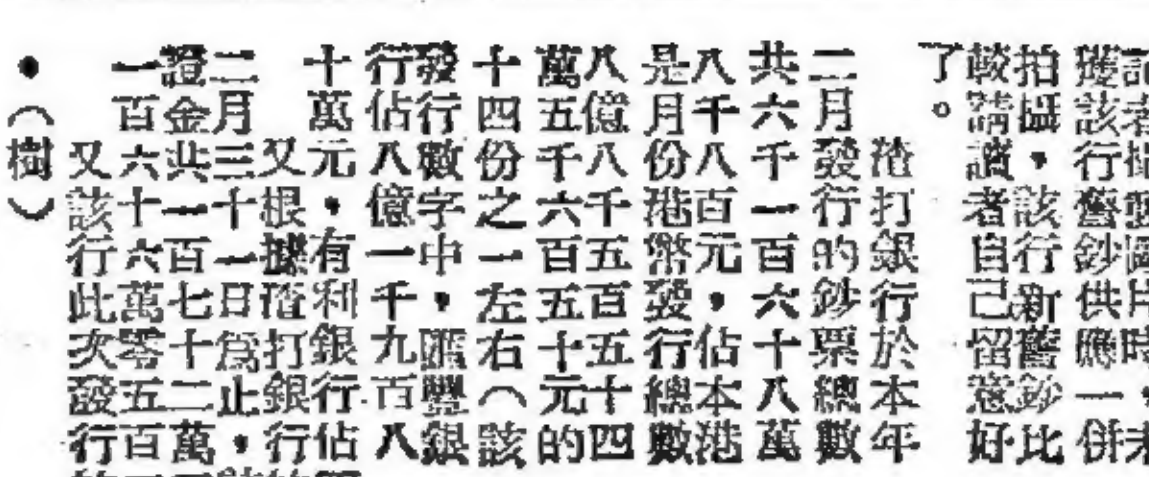 獲該行舊鈔供應一併
拍攝，該行新舊鈔比
較請讀者自己留意好
了。
渣打銀行於本年
二月發行的鈔票總數
共六千一百六十八萬
八千八百元，佔本港
是月份港幣發行總數
八億八千五百五十四
萬五千六百五十元的
十四份之一左右（該
發行數字中，匯豐銀
行佔八億一千九百八
十萬元，有利銀行佔
又根據渣打銀行
二月三十一日爲止，
證金共一百七十二萬
一百六十六萬零五百
又該行此次發行
•（樹）